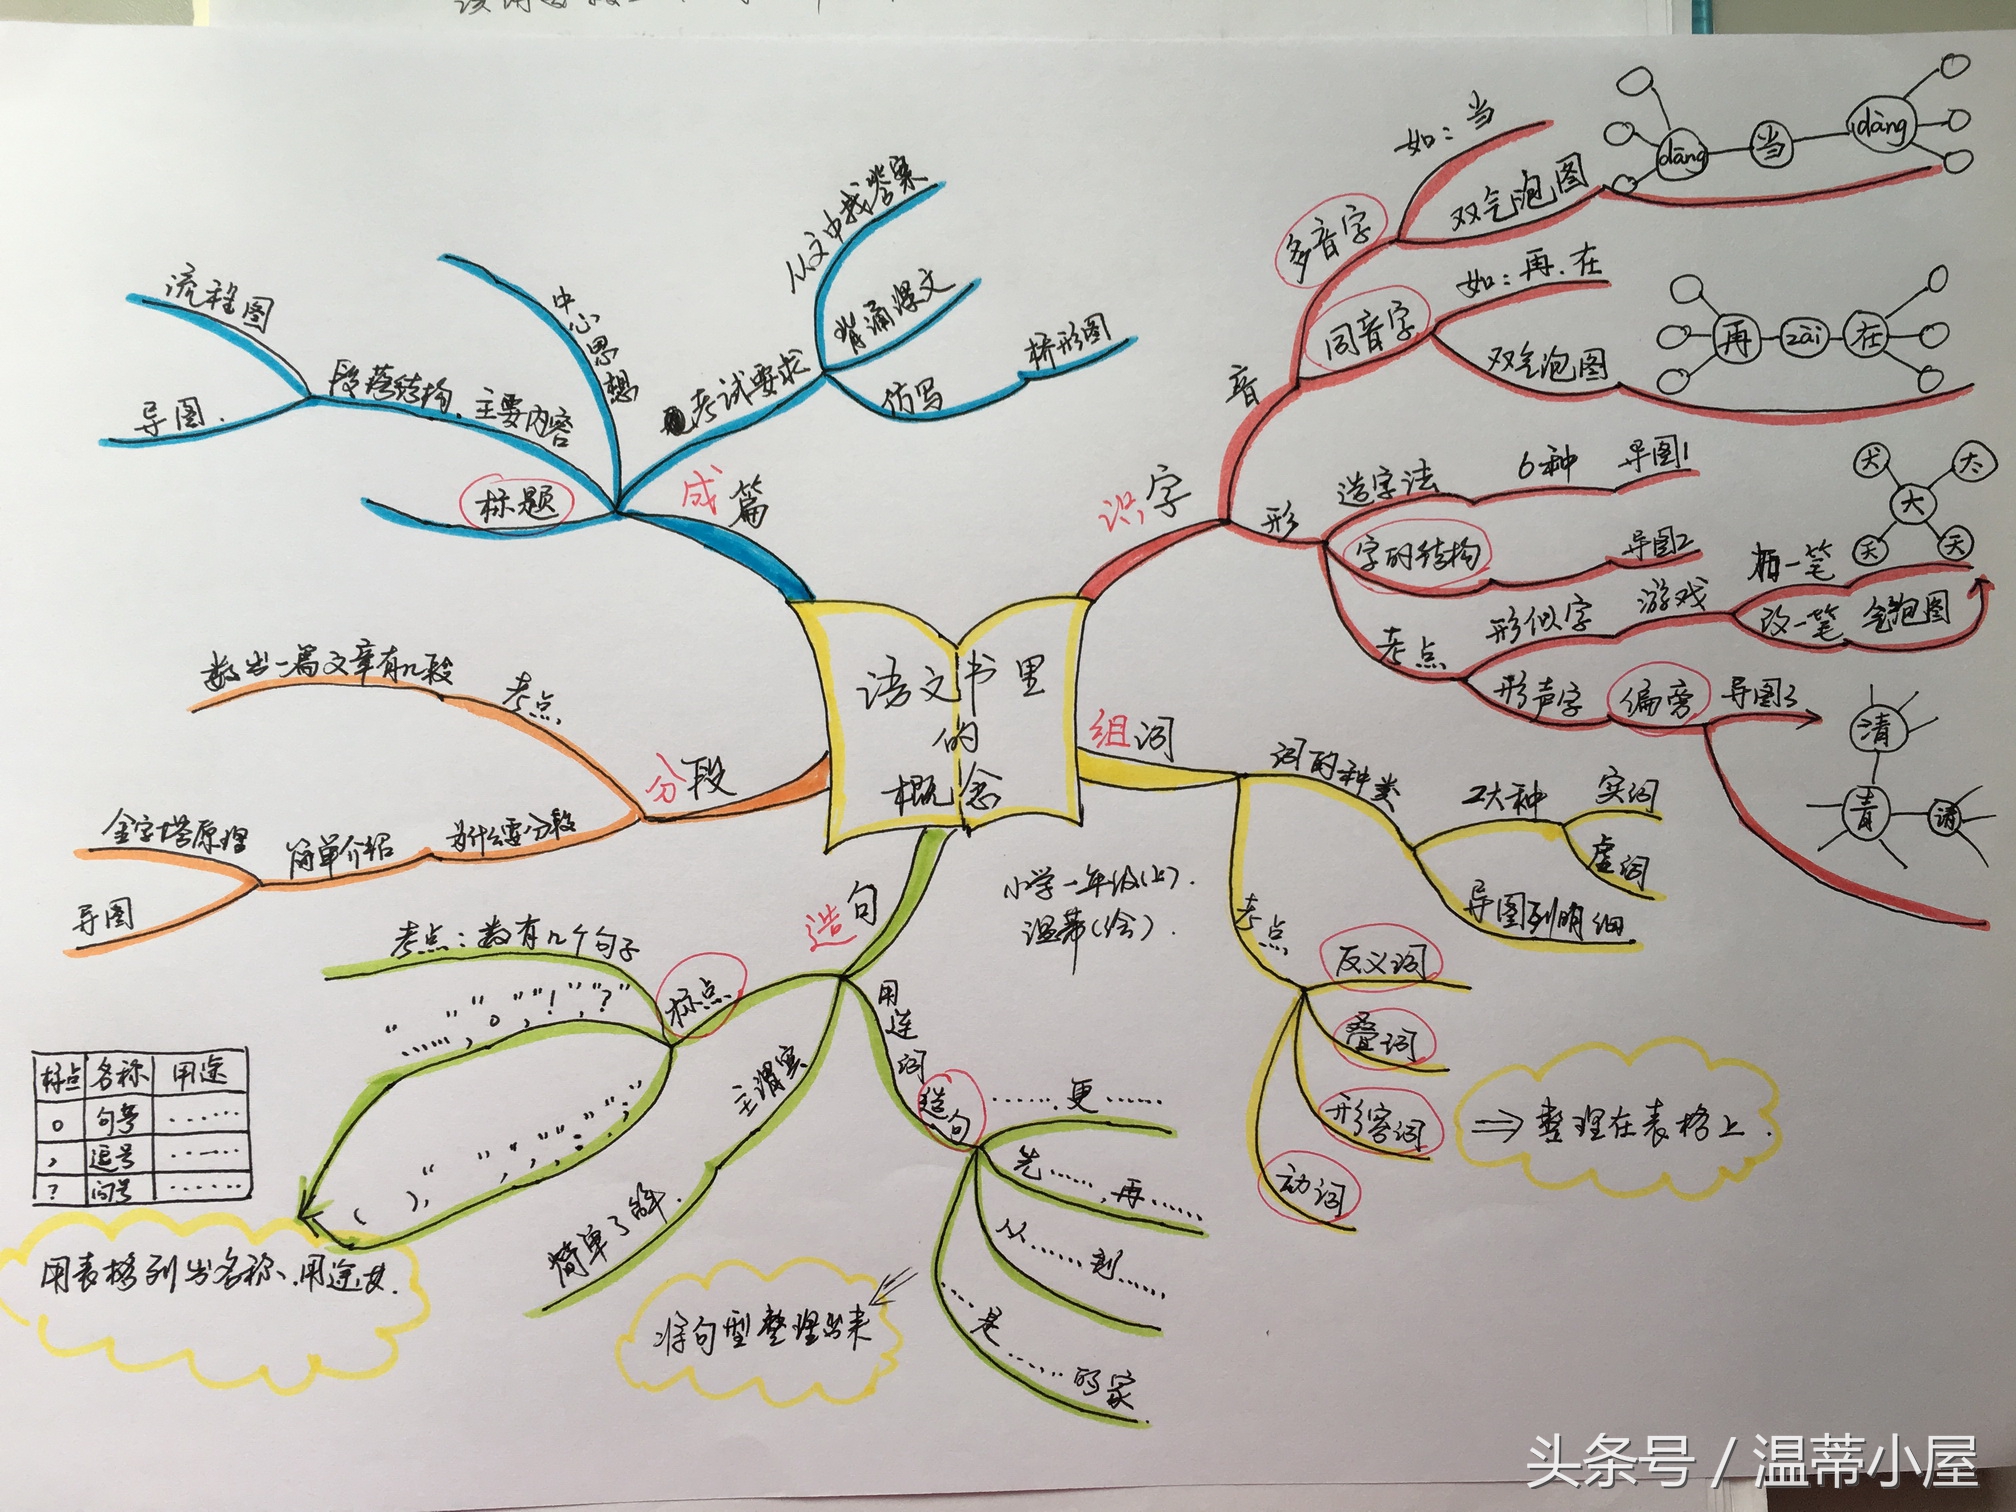 语文书里
的
概念
小学一年级(上).
温蒂(绘).
识字
音
多音字
如：当
双气泡图
dāng
当
dàng
同音字
如：再.在
双气泡图
再
zài
在
形
造字法
6种
导图1
字的结构
导图2
考点
形似字
游戏
加一笔
改一笔
气泡图
犬
太
大
天
形声字
偏旁
导图3
清
青
请
组词
词的种类
2大种
实词
虚词
导图列明细
考点
反义词
叠词
形容词
动词
⇒ 整理在表格上.
造句
用连词
造句
……更……
先……,再……
从……到……
……是……的家
将句型整理出来
主谓宾
简单了解.
标点
考点：数有几个句子
标点 名称 用途
。 句号 ……
， 逗号 ……
？ 问号 ……
用表格列出名称、用途
分段
考点
数出一篇文章有几段
为什么要分段
简单介绍
金字塔原理
导图
成篇
标题
段落结构、主要内容
流程图
导图.
中心思想
考试要求
从文中找答案
背诵课文
仿写
桥形图
头条号 / 温蒂小屋